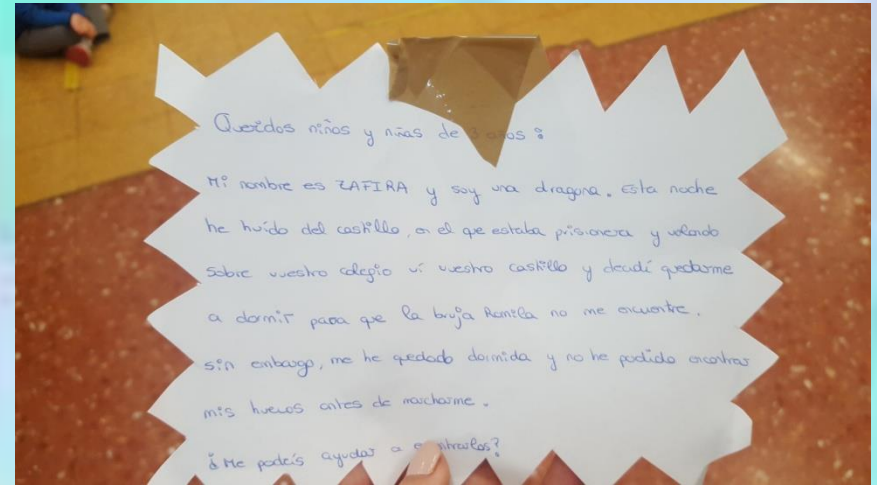 Queridos niños y niñas de 3 años:
Mi nombre es ZAFIRA y soy una dragona. Esta noche
he huido del castillo, en el que estaba prisionera y volando
sobre vuestro colegio vi vuestro castillo y decidí quedarme
a dormir para que la bruja Ramila no me encuentre.
sin embargo, me he quedado dormida y no he podido encontrar
mis huevos antes de marcharme.
¿Me podéis ayudar a encontrarlos?